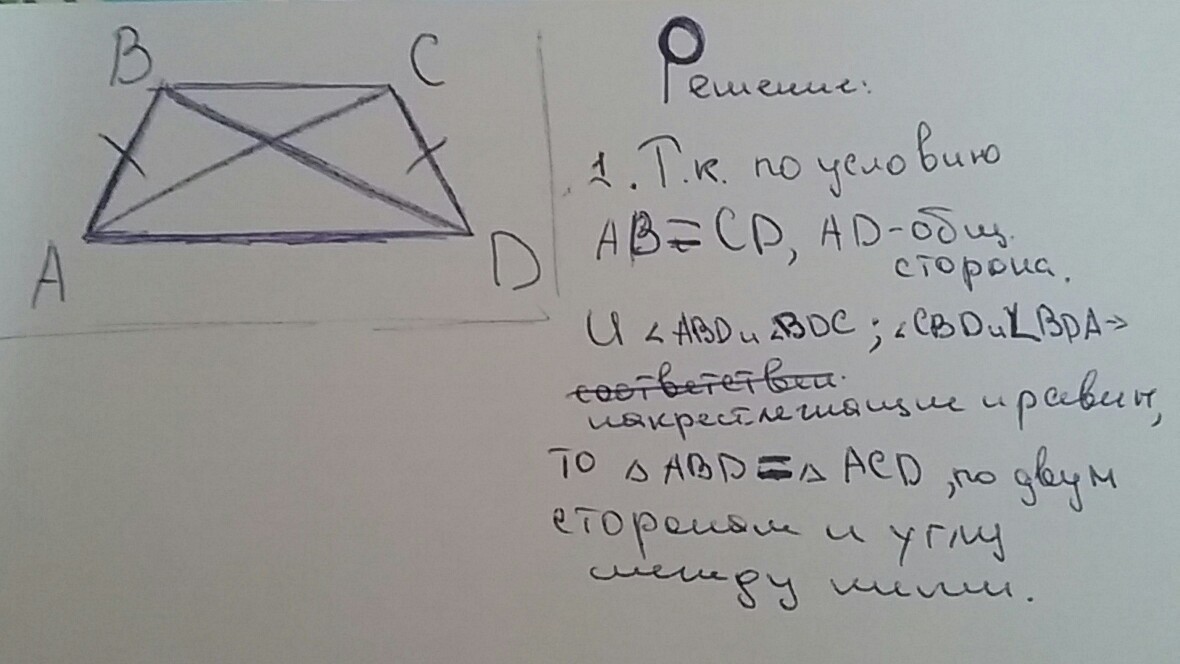 B C
A D
Решение:
1. Т.к. по условию
AB = CD, AD - общ.
сторона.
И ∠ABD и ∠BDC ; ∠CBD и ∠BDA →
соответствен.
накрестлежащие и равны,
то △ABD = △ACD, по двум
сторонам и углу
между ними.